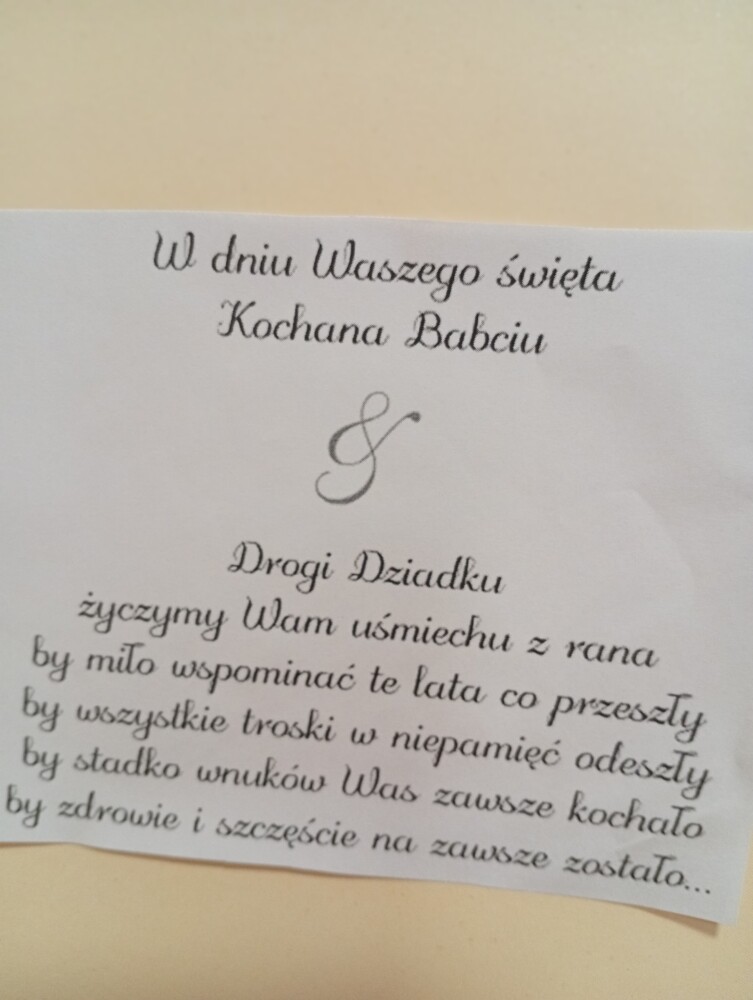 W dniu Waszego święta
Kochana Babciu
&
Drogi Dziadku
życzymy Wam uśmiechu z rana
by miło wspominać te lata co przeszły
by wszystkie troski w niepamięć odeszły
by stadko wnuków Was zawsze kochało
by zdrowie i szczęście na zawsze zostało...